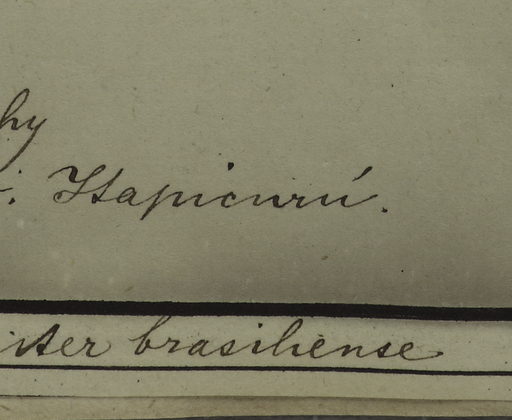 hy
Itapicurú.
iter brasiliense